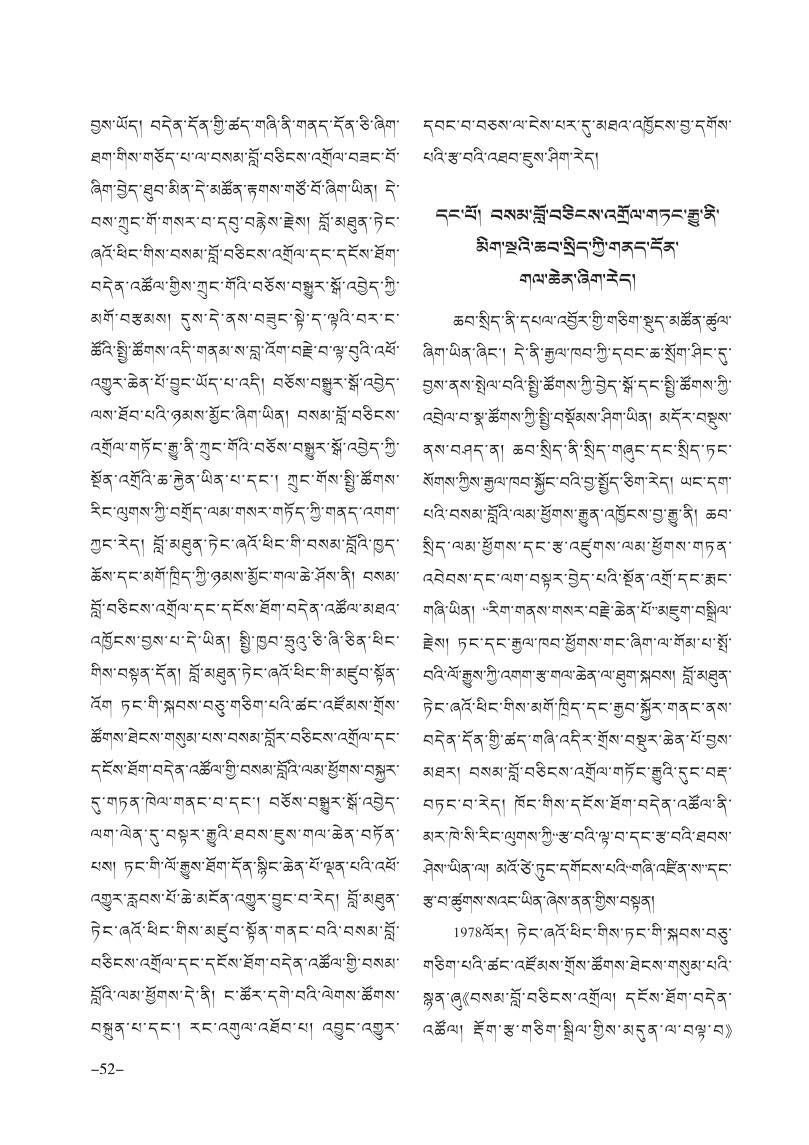 བྱས་ཡོད། བདེན་དོན་གྱི་ཚད་གཞི་ནི་གནད་དོན་ཅི་ཞིག་
ཐག་གིས་གཅོད་པ་ལ་བསམ་བློ་བཅིངས་འགྲོལ་བཟང་པོ་
ཞིག་བྱེད་ཐུབ་མིན་དེ་མཚོན་རྟགས་གཙོ་བོ་ཞིག་ཡིན། དེ་
བས་ཀྲུང་གོ་གསར་བ་དབུ་བརྙེས་རྗེས། བློ་མཐུན་ཏེང་
ཞའོ་ཕིང་གིས་བསམ་བློ་བཅིངས་འགྲོལ་དང་དངོས་ཐོག་
བདེན་འཚོལ་གྱིས་ཀྲུང་གོའི་བཅོས་བསྒྱུར་སྒོ་འབྱེད་ཀྱི་
མགོ་བརྩམས། དུས་དེ་ནས་བཟུང་སྟེ་ད་ལྟའི་བར་ང་
ཚོའི་སྤྱི་ཚོགས་འདི་གནམ་ས་བླ་འོག་བརྗེ་བ་ལྟ་བུའི་འཕོ་
འགྱུར་ཆེན་པོ་བྱུང་ཡོད་པ་འདི། བཅོས་བསྒྱུར་སྒོ་འབྱེད་
ལས་ཐོབ་པའི་ཉམས་མྱོང་ཞིག་ཡིན། བསམ་བློ་བཅིངས་
འགྲོལ་གཏོང་རྒྱུ་ནི་ཀྲུང་གོའི་བཅོས་བསྒྱུར་སྒོ་འབྱེད་ཀྱི་
སྔོན་འགྲོའི་ཆ་རྐྱེན་ཡིན་པ་དང་། ཀྲུང་གོས་སྤྱི་ཚོགས་
རིང་ལུགས་ཀྱི་བགྲོད་ལམ་གསར་གཏོད་ཀྱི་གནད་འགག་
ཀྱང་རེད། བློ་མཐུན་ཏེང་ཞའོ་ཕིང་གི་བསམ་བློའི་ཁྱད་
ཆོས་དང་མགོ་ཁྲིད་ཀྱི་ཉམས་མྱོང་གལ་ཆེ་ཤོས་ནི། བསམ་
བློ་བཅིངས་འགྲོལ་དང་དངོས་ཐོག་བདེན་འཚོལ་མཐའ་
འཁྱོངས་བྱས་པ་དེ་ཡིན། སྤྱི་ཁྱབ་ཧྲུའུ་ཅི་ཞི་ཅིན་ཕིང་
གིས་བསྟན་དོན། བློ་མཐུན་ཏེང་ཞའོ་ཕིང་གི་མཛུབ་སྟོན་
འོག ཏང་གི་སྐབས་བཅུ་གཅིག་པའི་ཚང་འཛོམས་གྲོས་
ཚོགས་ཐེངས་གསུམ་པས་བསམ་བློར་བཅིངས་འགྲོལ་དང་
དངོས་ཐོག་བདེན་འཚོལ་གྱི་བསམ་བློའི་ལམ་ཕྱོགས་བསྐྱར་
དུ་གཏན་ཁེལ་གནང་བ་དང་། བཅོས་བསྒྱུར་སྒོ་འབྱེད་
ལག་ལེན་དུ་བསྟར་རྒྱུའི་ཐབས་ཇུས་གལ་ཆེན་བཏོན་
པས། ཏང་གི་ལོ་རྒྱུས་ཐོག་དོན་སྙིང་ཆེན་པོ་ལྡན་པའི་འཕོ་
འགྱུར་རླབས་པོ་ཆེ་མངོན་འགྱུར་བྱུང་བ་རེད། བློ་མཐུན་
ཏེང་ཞའོ་ཕིང་གིས་མཛུབ་སྟོན་གནང་བའི་བསམ་བློ་
བཅིངས་འགྲོལ་དང་དངོས་ཐོག་བདེན་འཚོལ་གྱི་བསམ་
བློའི་ལམ་ཕྱོགས་དེ་ནི། ང་ཚོར་དགེ་བའི་ལེགས་ཚོགས་
བསྐྲུན་པ་དང་། རང་འགུལ་འཐོབ་པ། འབྱུང་འགྱུར་
དབང་བ་བཅས་ལ་ངེས་པར་དུ་མཐའ་འཁྱོངས་བྱ་དགོས་
པའི་རྩ་བའི་འཐབ་ཇུས་ཤིག་རེད།
དང་པོ། བསམ་བློ་བཅིངས་འགྲོལ་གཏང་རྒྱུ་ནི་
མིག་སྔའི་ཆབ་སྲིད་ཀྱི་གནད་དོན་
གལ་ཆེན་ཞིག་རེད།
ཆབ་སྲིད་ནི་དཔལ་འབྱོར་གྱི་གཅིག་སྡུད་མཚོན་ཚུལ་
ཞིག་ཡིན་ཞིང་། དེ་ནི་རྒྱལ་ཁབ་ཀྱི་དབང་ཆ་སྲོག་ཤིང་དུ་
བྱས་ནས་སྤེལ་བའི་སྤྱི་ཚོགས་ཀྱི་བྱེད་སྒོ་དང་སྤྱི་ཚོགས་ཀྱི་
འབྲེལ་བ་སྣ་ཚོགས་ཀྱི་སྤྱི་བསྡོམས་ཤིག་ཡིན། མདོར་བསྡུས་
ནས་བཤད་ན། ཆབ་སྲིད་ནི་སྲིད་གཞུང་དང་སྲིད་ཏང་
སོགས་ཀྱིས་རྒྱལ་ཁབ་སྐྱོང་བའི་བྱ་སྤྱོད་ཅིག་རེད། ཡང་དག་
པའི་བསམ་བློའི་ལམ་ཕྱོགས་རྒྱུན་འཁྱོངས་བྱ་རྒྱུ་ནི། ཆབ་
སྲིད་ལམ་ཕྱོགས་དང་རྩ་འཛུགས་ལམ་ཕྱོགས་གཏན་
འབེབས་དང་ལག་བསྟར་བྱེད་པའི་སྔོན་འགྲོ་དང་རྨང་
གཞི་ཡིན། “རིག་གནས་གསར་བརྗེ་ཆེན་པོ”མཇུག་བསྒྲིལ་
རྗེས། ཏང་དང་རྒྱལ་ཁབ་ཕྱོགས་གང་ཞིག་ལ་གོམ་པ་སྤོ་
བའི་ལོ་རྒྱུས་ཀྱི་འགག་རྩ་གལ་ཆེན་ལ་ཐུག་སྐབས། བློ་མཐུན་
ཏེང་ཞའོ་ཕིང་གིས་མགོ་ཁྲིད་དང་རྒྱབ་སྐྱོར་གནང་ནས་
བདེན་དོན་གྱི་ཚད་གཞི་འདིར་གྲོས་བསྡུར་ཆེན་པོ་བྱས་
མཐར། བསམ་བློ་བཅིངས་འགྲོལ་གཏོང་རྒྱུའི་དུང་བརྡ་
བཏང་བ་རེད། ཁོང་གིས་དངོས་ཐོག་བདེན་འཚོལ་ནི་
མར་ཁེ་སི་རིང་ལུགས་ཀྱི“རྩ་བའི་ལྟ་བ་དང་རྩ་བའི་ཐབས་
ཤེས”ཡིན་ལ། མའོ་ཙེ་ཏུང་དགོངས་པའི“གཞི་འཛིན་ས”དང་
རྩ་བ་ཚུགས་སའང་ཡིན་ཞེས་ནན་གྱིས་བསྟན།
1978ལོར། ཏེང་ཞའོ་ཕིང་གིས་ཏང་གི་སྐབས་བཅུ་
གཅིག་པའི་ཚང་འཛོམས་གྲོས་ཚོགས་ཐེངས་གསུམ་པའི་
སྙན་ཞུ《བསམ་བློ་བཅིངས་འགྲོལ། དངོས་ཐོག་བདེན་
འཚོལ། རྡོག་རྩ་གཅིག་སྒྲིལ་གྱིས་མདུན་ལ་བལྟ་བ》
–52–